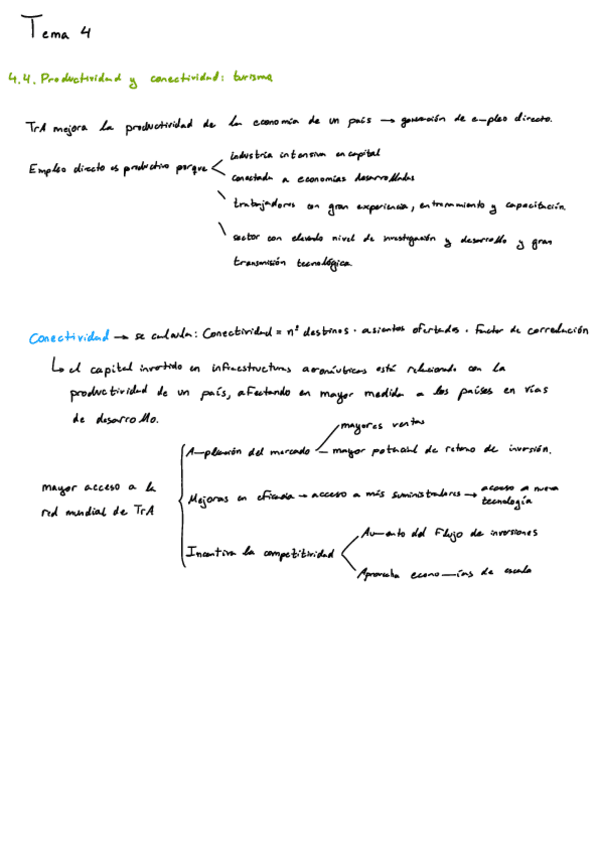 Tema 4
4.4. Productividad y conectividad: turismo
TrA mejora la productividad de la economía de un país → generación de empleo directo.
Empleo directo es productivo porque
industria intensiva en capital
conectada a economías desarrolladas
trabajadores con gran experiencia, entrenamiento y capacitación.
sector con elevado nivel de investigación y desarrollo y gran
transmisión tecnológica.
Conectividad → se calcula: Conectividad = nº destinos · asientos ofertados · Factor de corrección
↳ el capital invertido en infraestructuras aeronáuticas está relacionado con la
productividad de un país, afectando en mayor medida a los países en vías
de desarrollo.
mayor acceso a la
red mundial de TrA
Ampliación del mercado
mayores ventas
mayor potencial de retorno de inversión.
Mejoras en eficiencia → acceso a más suministradores → acceso a nueva
tecnología
Incentiva la competitividad
Aumento del Flujo de inversiones
Aprovecha economías de escala